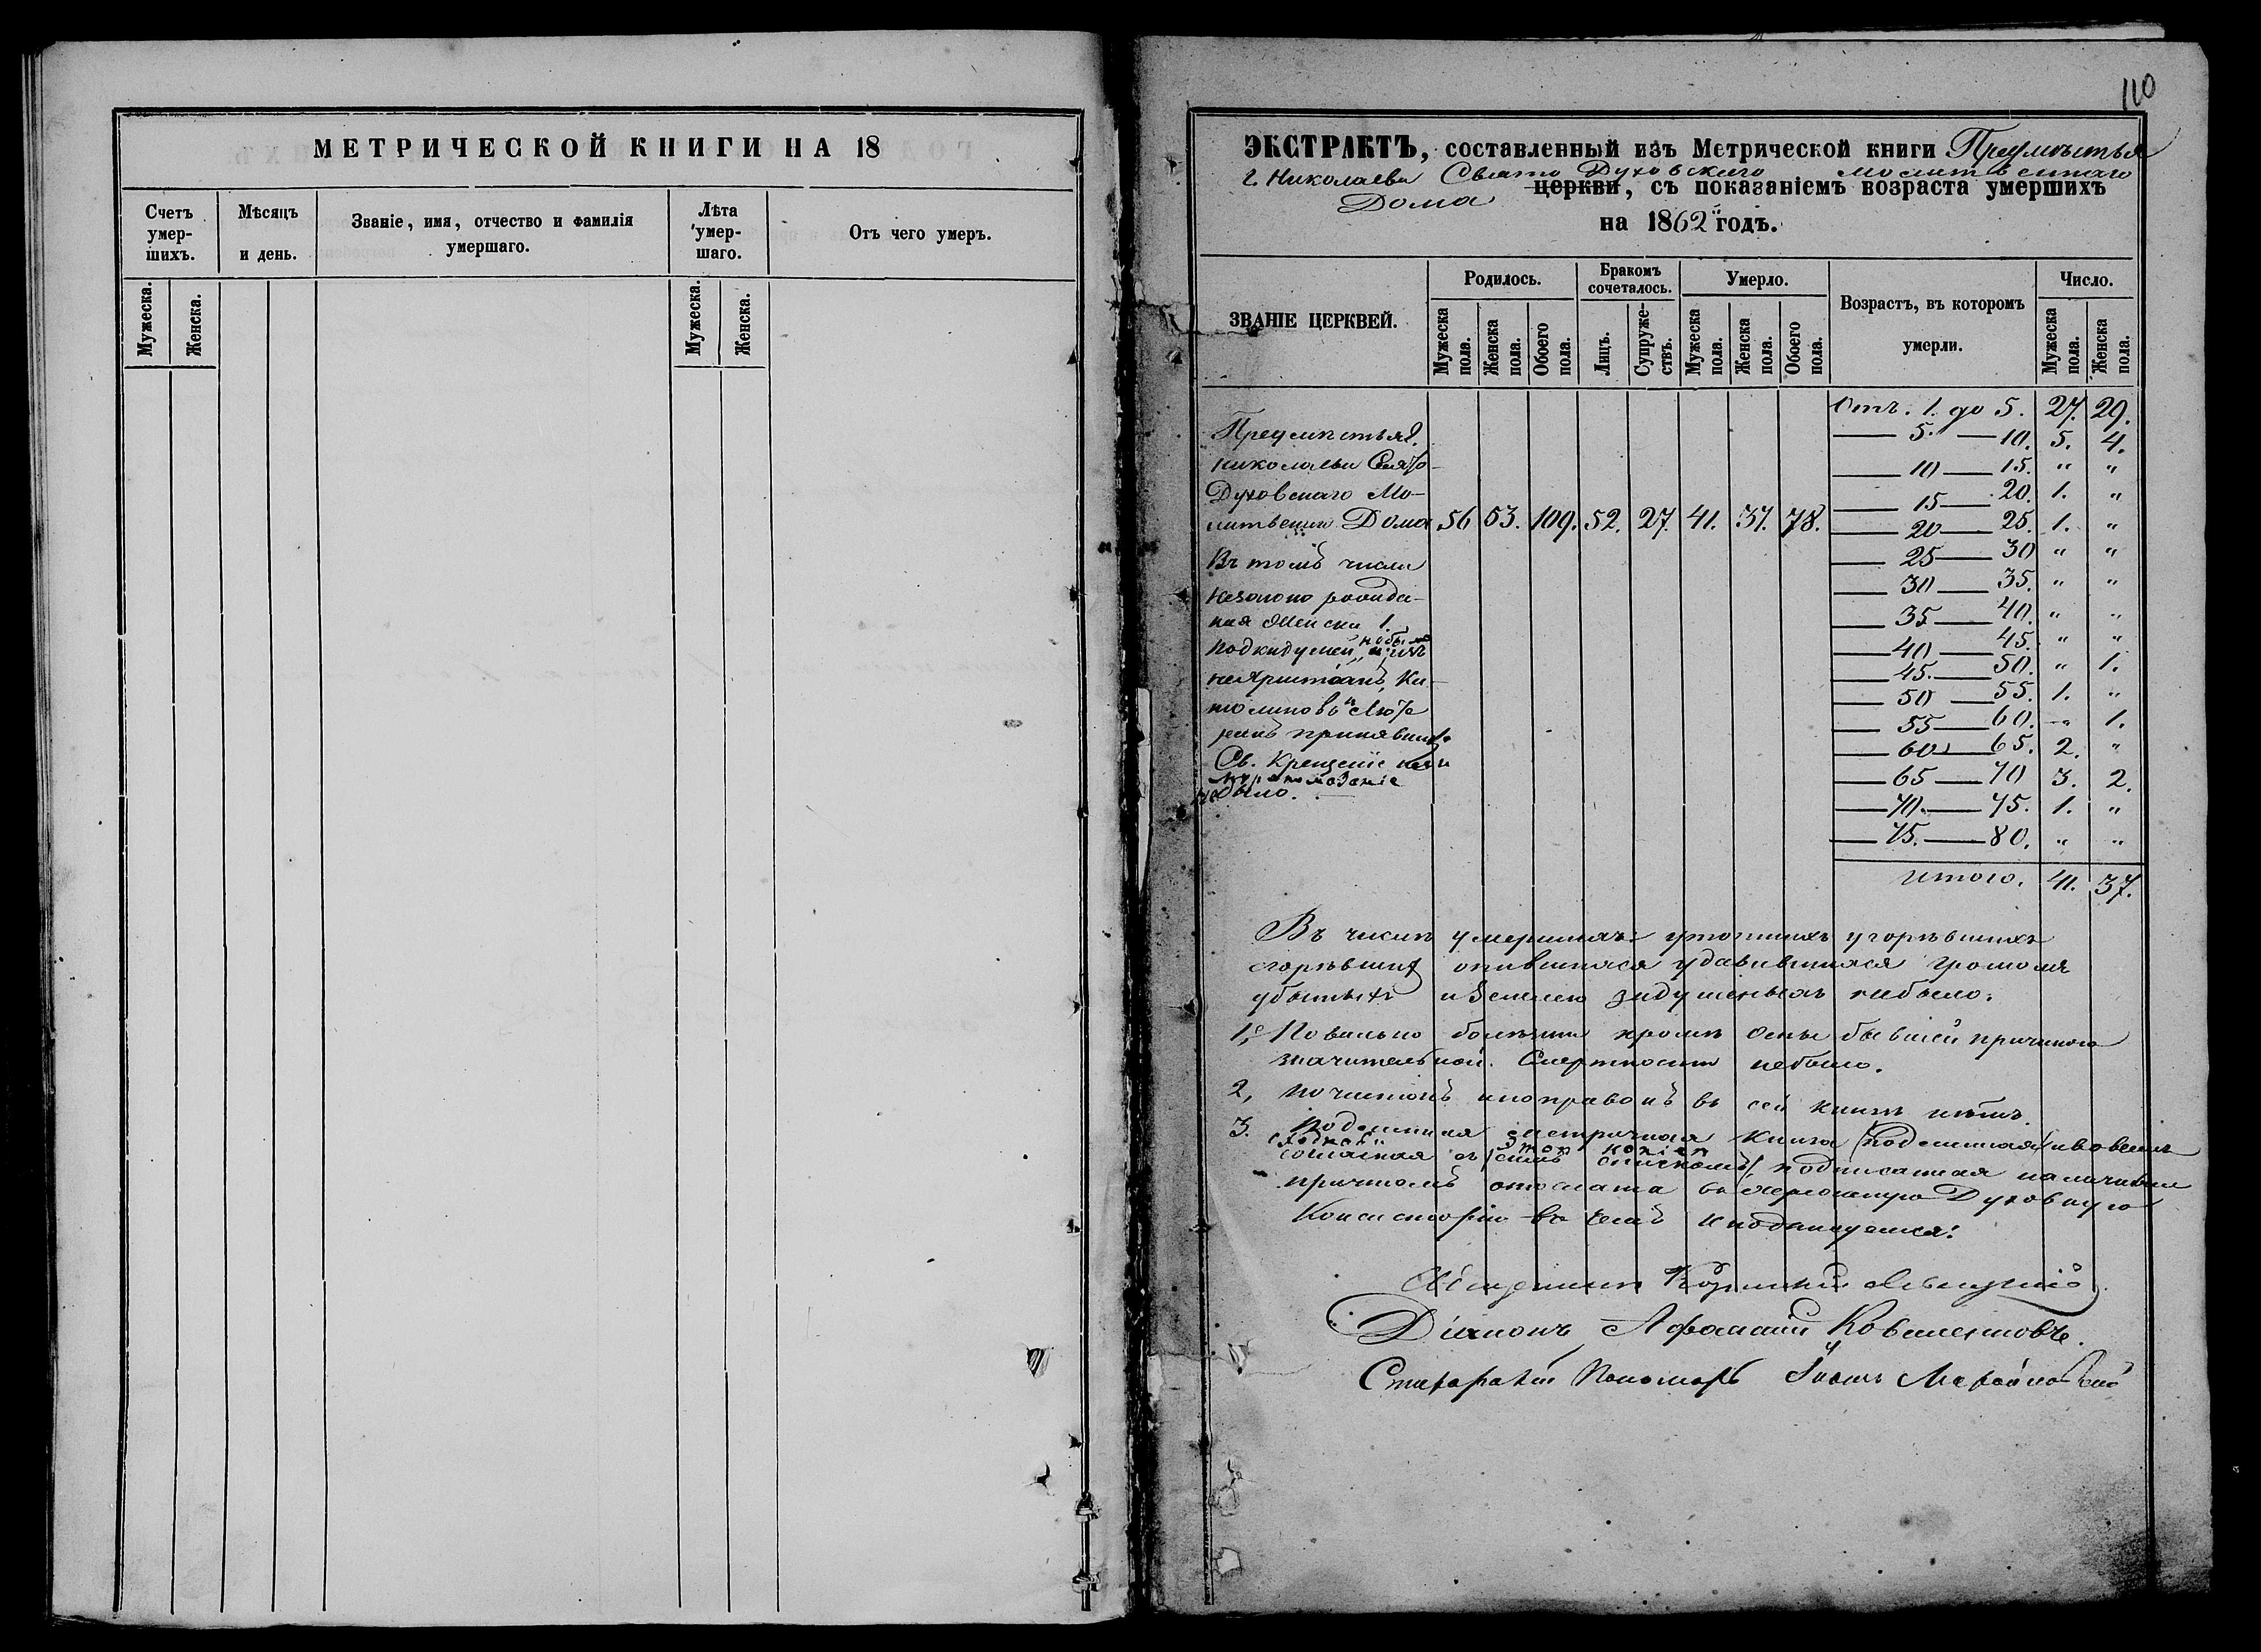 МЕТРИЧЕСКОЙ КНИГИ НА 18
Счетъ умер-шихъ.
Мѣсяцъ и день.
Званіе, имя, отчество и фамилія умершаго.
Лѣта умер-шаго.
Отъ чего умеръ.
Мужеска.
Женска.
Мужеска.
Женска.
110
ЭКСТРАКТЪ, составленный изъ Метрической книги Предмѣстья
г. Николаева Свято Духовскаго молитвеннаго
Дома церкви, съ показаніемъ возраста умершихъ
на 1862й годъ.
ЗВАНІЕ ЦЕРКВЕЙ.
Родилось.
Бракомъ сочеталось.
Умерло.
Возрастъ, въ которомъ умерли.
Число.
Мужеска пола.
Женска пола.
Обоего пола.
Лицъ.
Супруже-ствъ.
Мужеска пола.
Женска пола.
Обоего пола.
Мужеска пола.
Женска пола.
Отъ. 1. до 5. 27. 29.
— 5. — 10. 5. 4.
— 10 — 15. „ „
— 15 — 20. 1. „
— 20 — 25. 1. „
— 25 — 30 „ „
— 30 — 35. „ „
— 35 — 40. „ „
— 40 — 45. „ „
— 45. — 50. „ 1.
— 50 — 55. 1. „
— 55 — 60. „ 1.
— 60 — 65. 2. „
— 65 — 70 3. 2.
— 70. — 75. 1. „
— 75. — 80. „ „
итого. 41. 37.
Предмѣстья г.
Николаева Свято-
Духовскаго Мо-
литвеннаго Дома 56 53. 109. 52. 27. 41. 37. 78.
Въ томъ числѣ
незаконо рожден-
ная Женска 1.
Подкидушей небыло
нехристіанъ, Ка-
толиковъ и Люте
ранъ принявшихъ
Св. Крещеніе или
муропомазаніе
небыло.
Въ числѣ умершихъ: утопшихъ угорѣвшихъ
сгорѣвшихъ опившихся удавившихся громомъ
убитыхъ и землею задушенныхъ небыло.
1, Повально болѣзни кромѣ Оспы бывшей причиною
значительной. Смертности небыло.
2, по чистокъ и поправокъ въ сей книгѣ нѣтъ.
3. Подлинная метричная книга (подлинная) и во всемъ
сходная этой копіей
согласная съ симъ спискомъ подписанная наличнымъ
причтомъ отослата въ Херсонскую Духовную
Консисторію въ чемъ и подписуемся:
Священникъ
Діаконъ Афанасій
Пономарь Іоаннъ